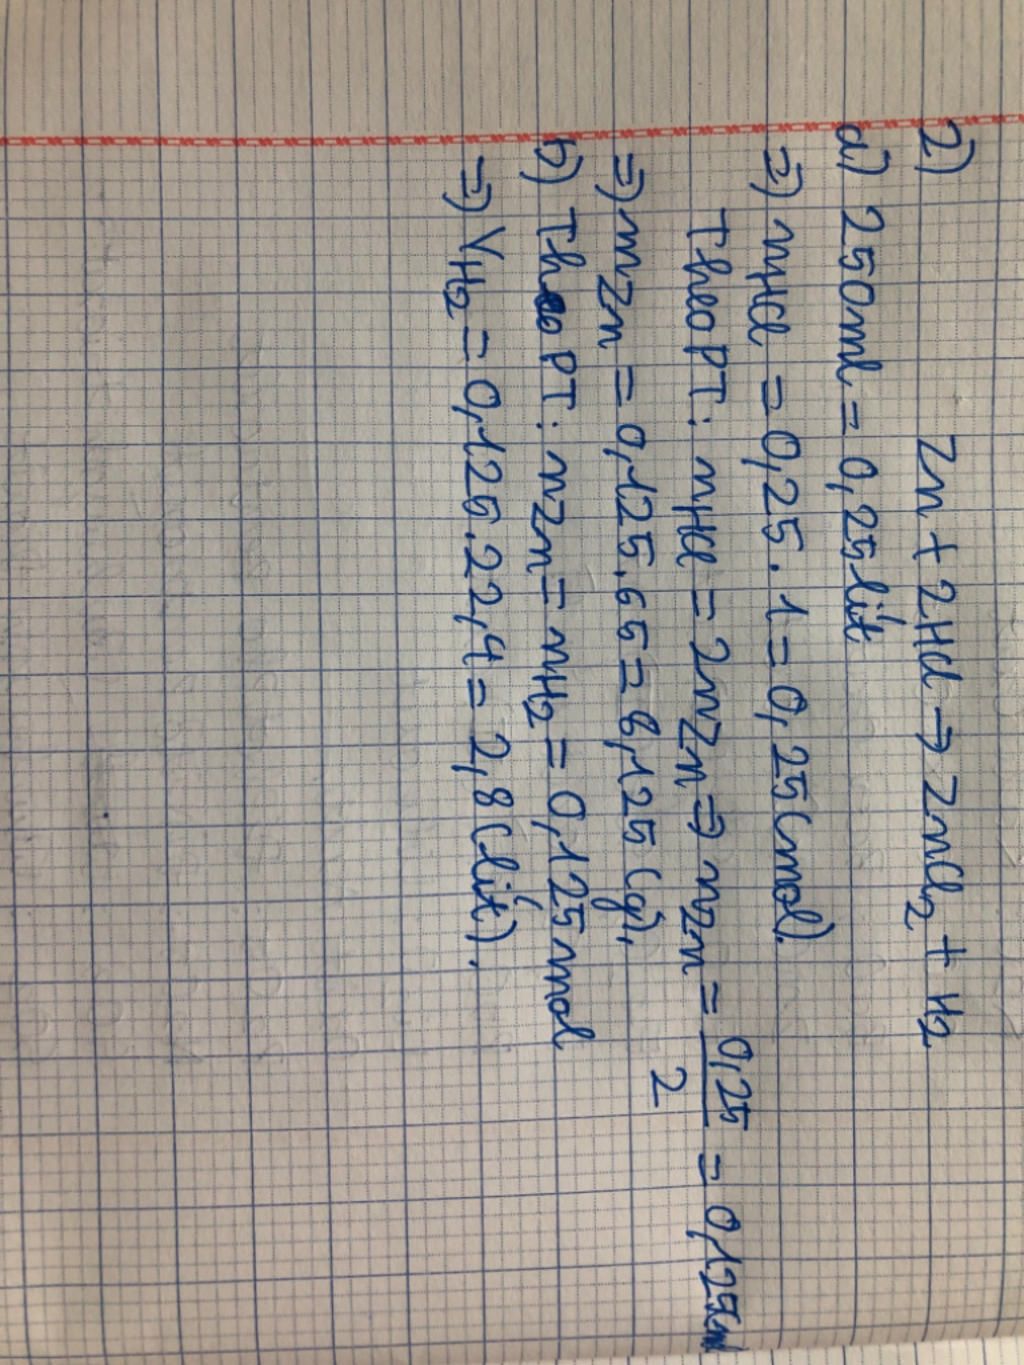 2) Zn + 2HCl → ZnCl₂ + H₂
a) 250ml = 0,25 lít
=) nHCl = 0,25 . 1 = 0,25 (mol).
Theo PT: nHCl = 2nZn => nZn = 0,25/2 = 0,125mol
=) mZn = 0,125.65 = 8,125 (g).
b) Theo PT: nZn = nH₂ = 0,125 mol
=) VH₂ = 0,125.22,4 = 2,8 (lít).